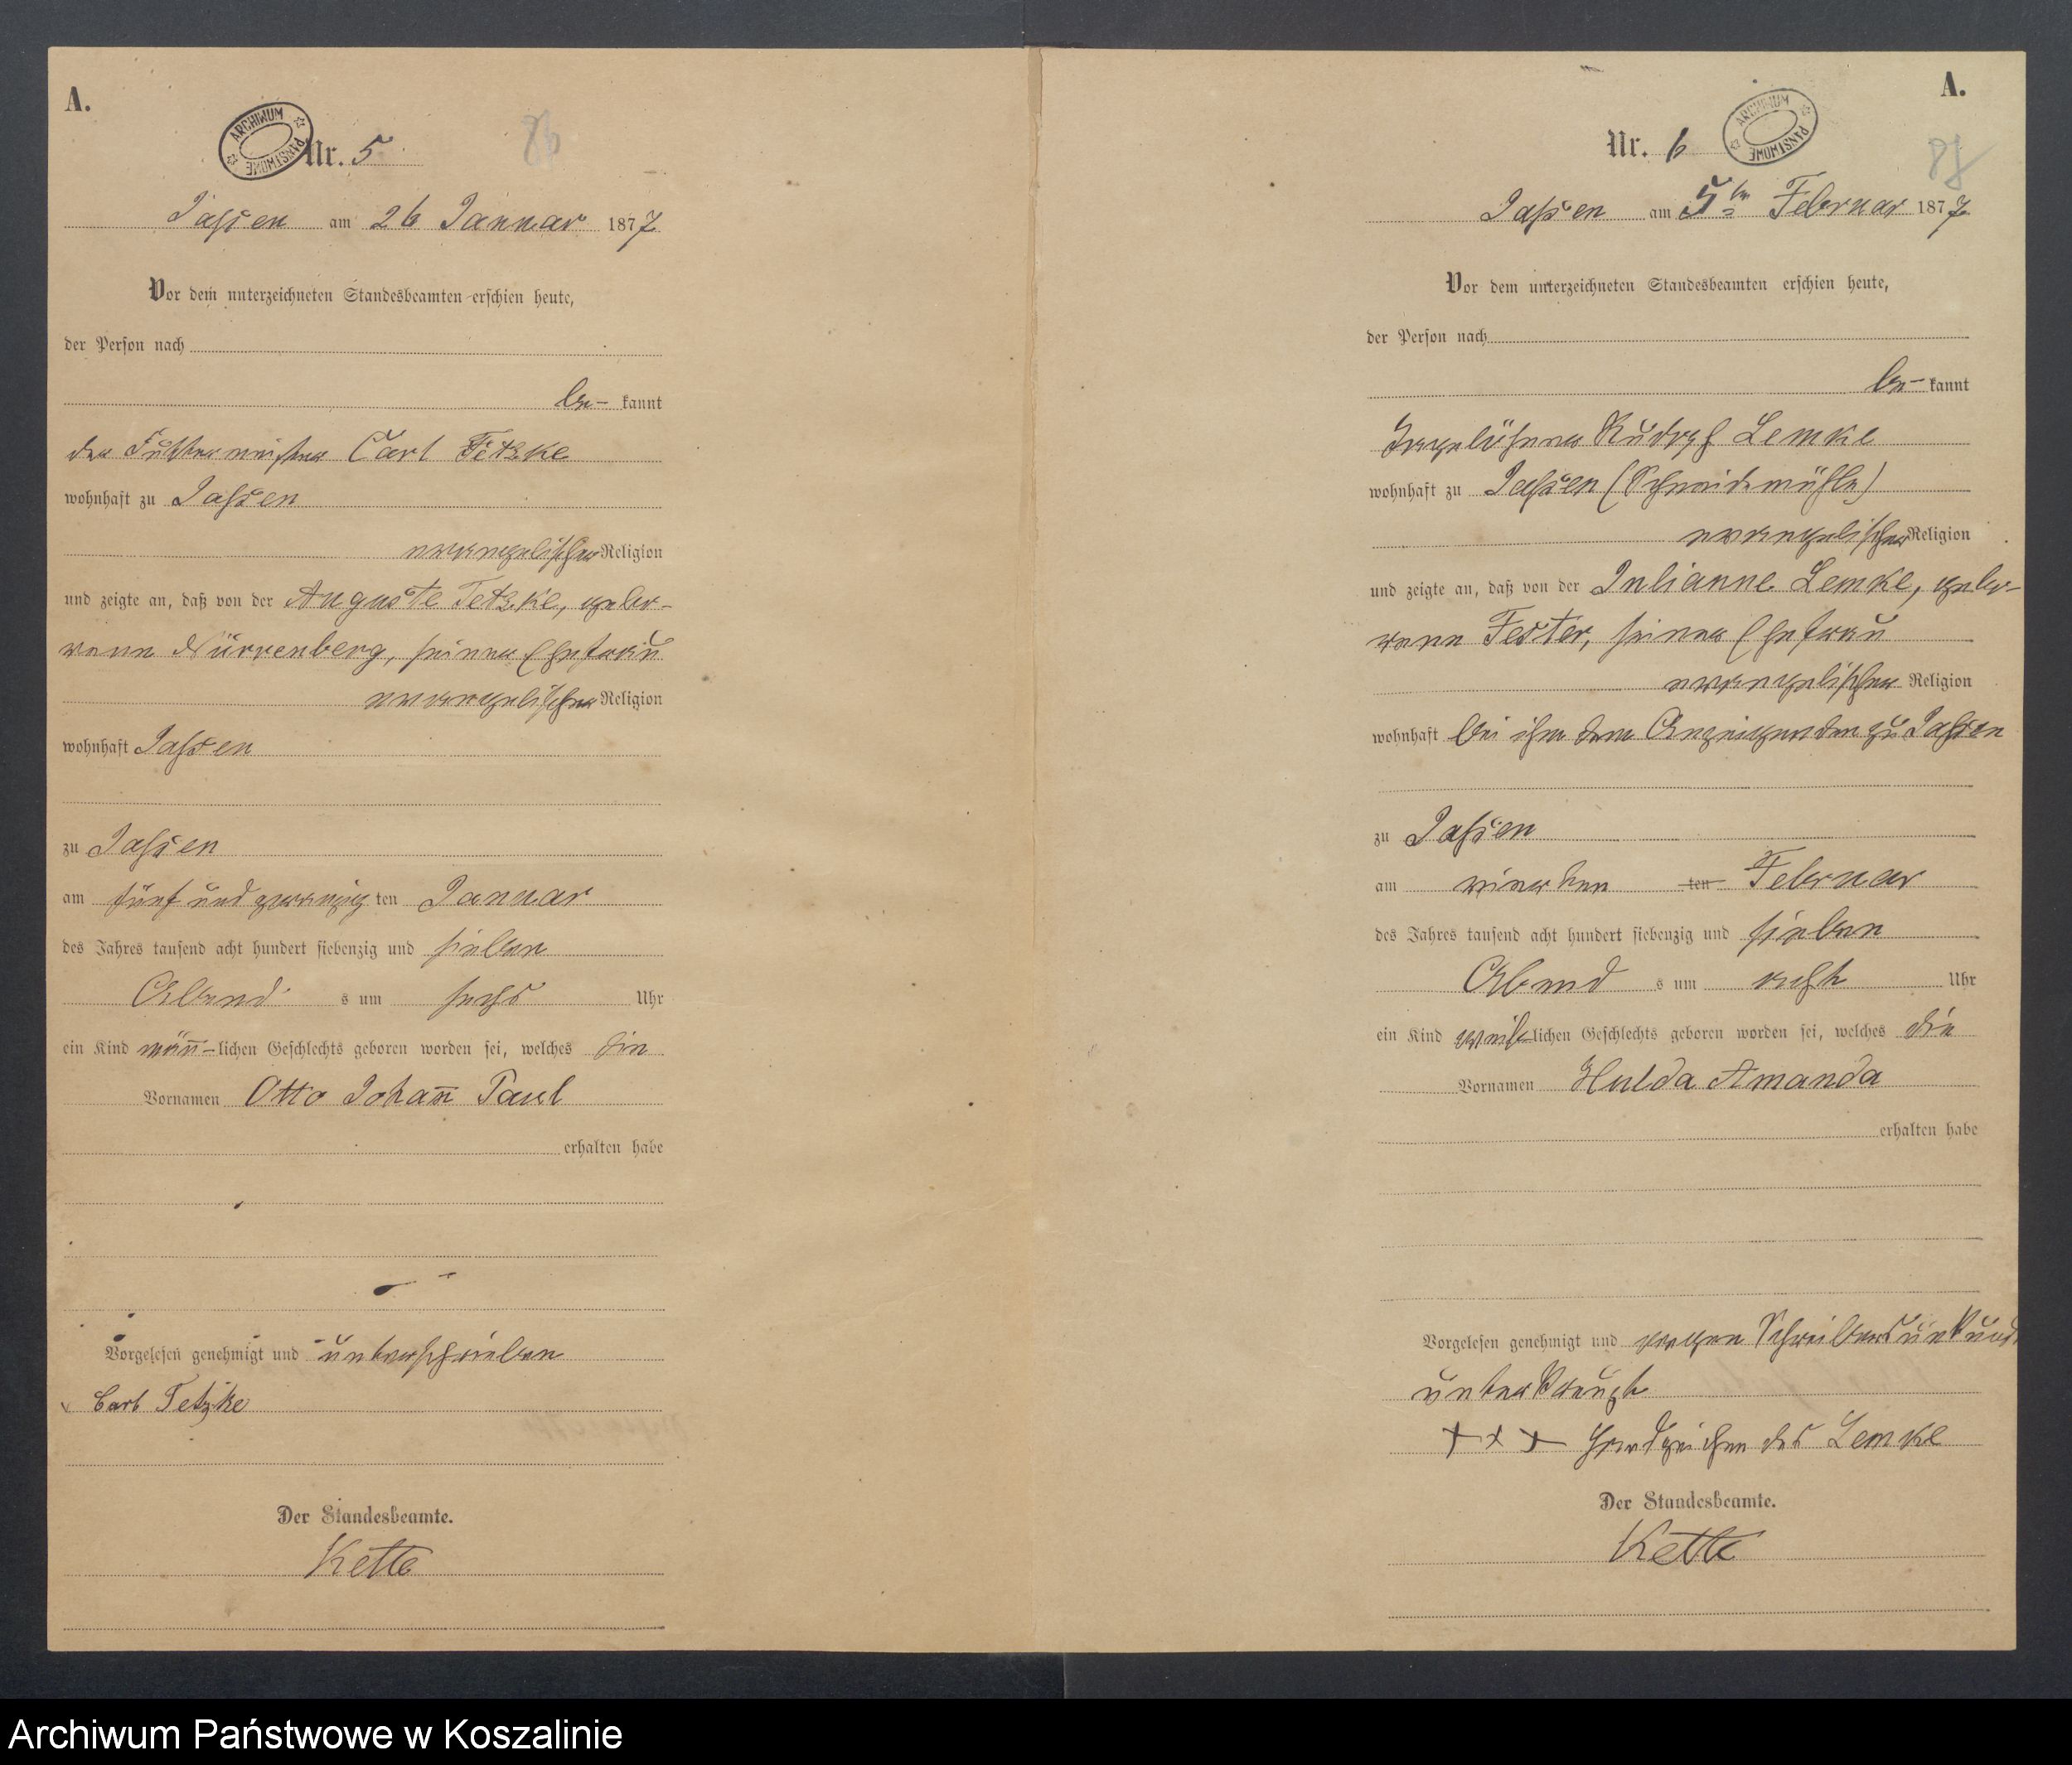 A.
ARCHIWUM PAŃSTWOWE
Nr. 5
Jassen am 26 Januar 1877
Vor dem unterzeichneten Standesbeamten erschien heute,
der Person nach
be- kannt
der Futtermeister Carl Tetzke
wohnhaft zu Jassen
evangelischer Religion
und zeigte an, daß von der Auguste Tetzke, gebo-
rene Nürrenberg, seiner Ehefrau
evangelischer Religion
wohnhaft Jassen
zu Jassen
am fünf und zwanzig ten Januar
des Jahres tausend acht hundert siebenzig und sieben
Abend s um sechs Uhr
ein Kind männ-lichen Geschlechts geboren worden sei, welches die
Vornamen Otto Johan̄ Paul
erhalten habe
Vorgelesen genehmigt und unterschrieben
Carl Tetzke
Der Standesbeamte.
Kette
A.
Nr. 6
ARCHIWUM PAŃSTWOWE
87
Jassen am 5ten Februar 1877
Vor dem unterzeichneten Standesbeamten erschien heute,
der Person nach
be- kannt
Tagelöhner Rudolf Lemke
wohnhaft zu Jassen (Schneidemühle)
evangelischer Religion
und zeigte an, daß von der Julianne Lemke, gebo-
rene Fester, seiner Ehefrau
evangelischer Religion
wohnhaft bei ihm dem Anzeigenden zu Jassen
zu Jassen
am vierten ten Februar
des Jahres tausend acht hundert siebenzig und sieben
Abend s um acht Uhr
ein Kind weiblichen Geschlechts geboren worden sei, welches die
Vornamen Hulda Amanda
erhalten habe
Vorgelesen genehmigt und wegen Schreibensunkunde
unterkreuzt
+ + + Handzeichen des Lemke
Der Standesbeamte.
Kette
Archiwum Państwowe w Koszalinie